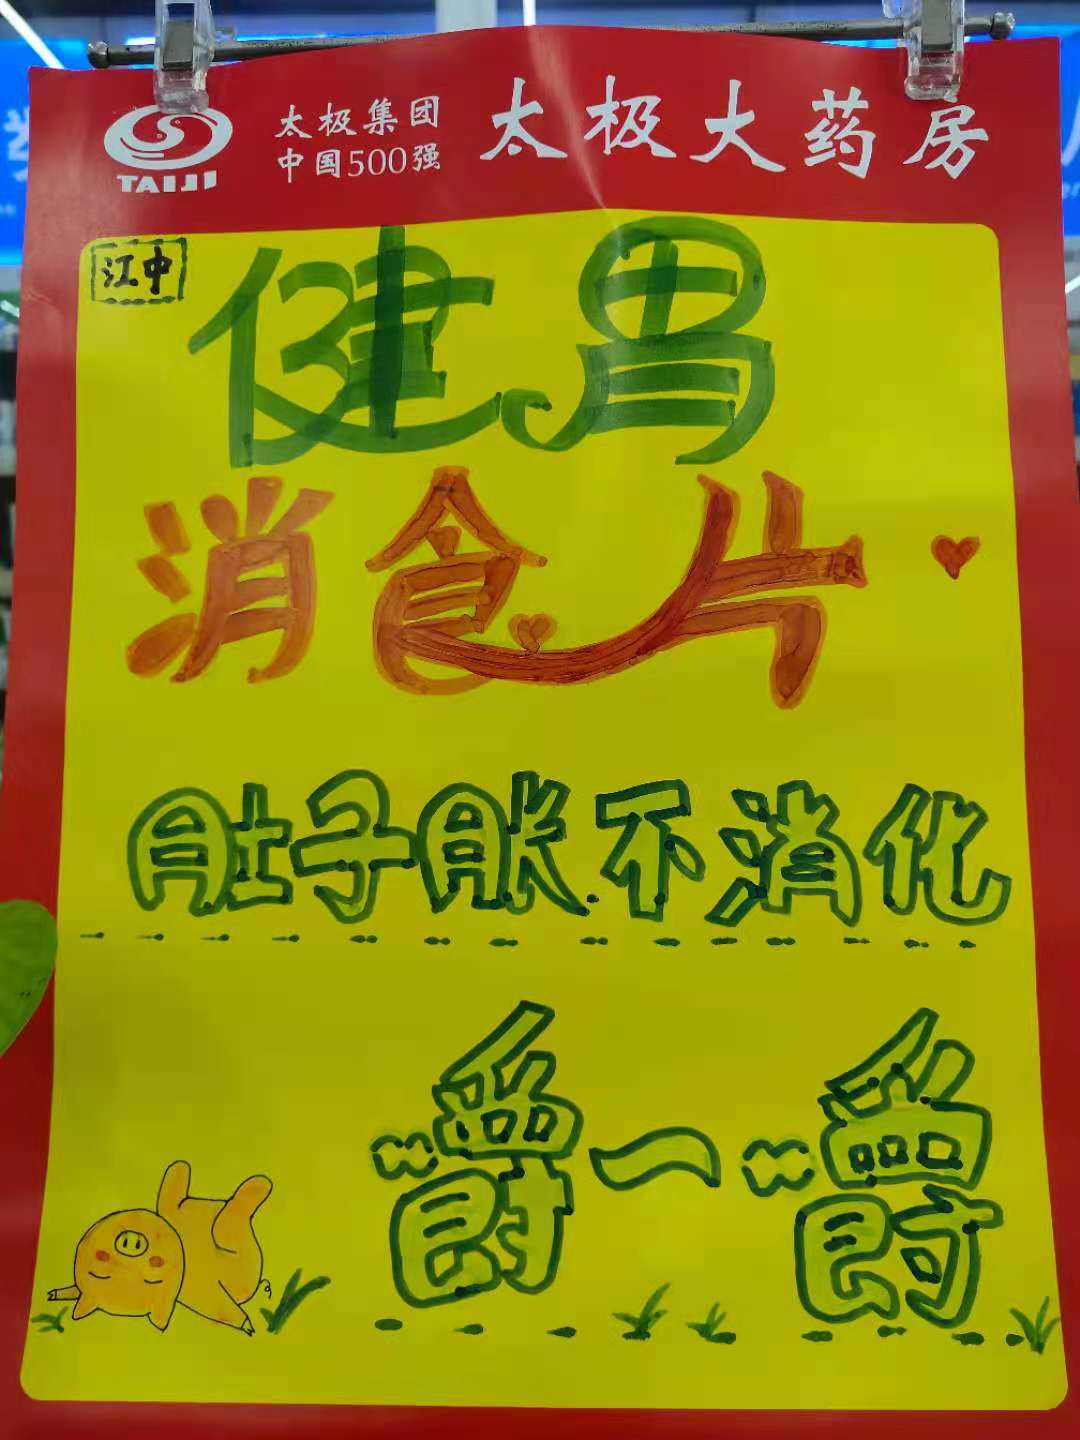 TAIJI
太极集团
中国500强
太极大药房
江中
健胃
消食片
肚子胀不消化
嚼一嚼